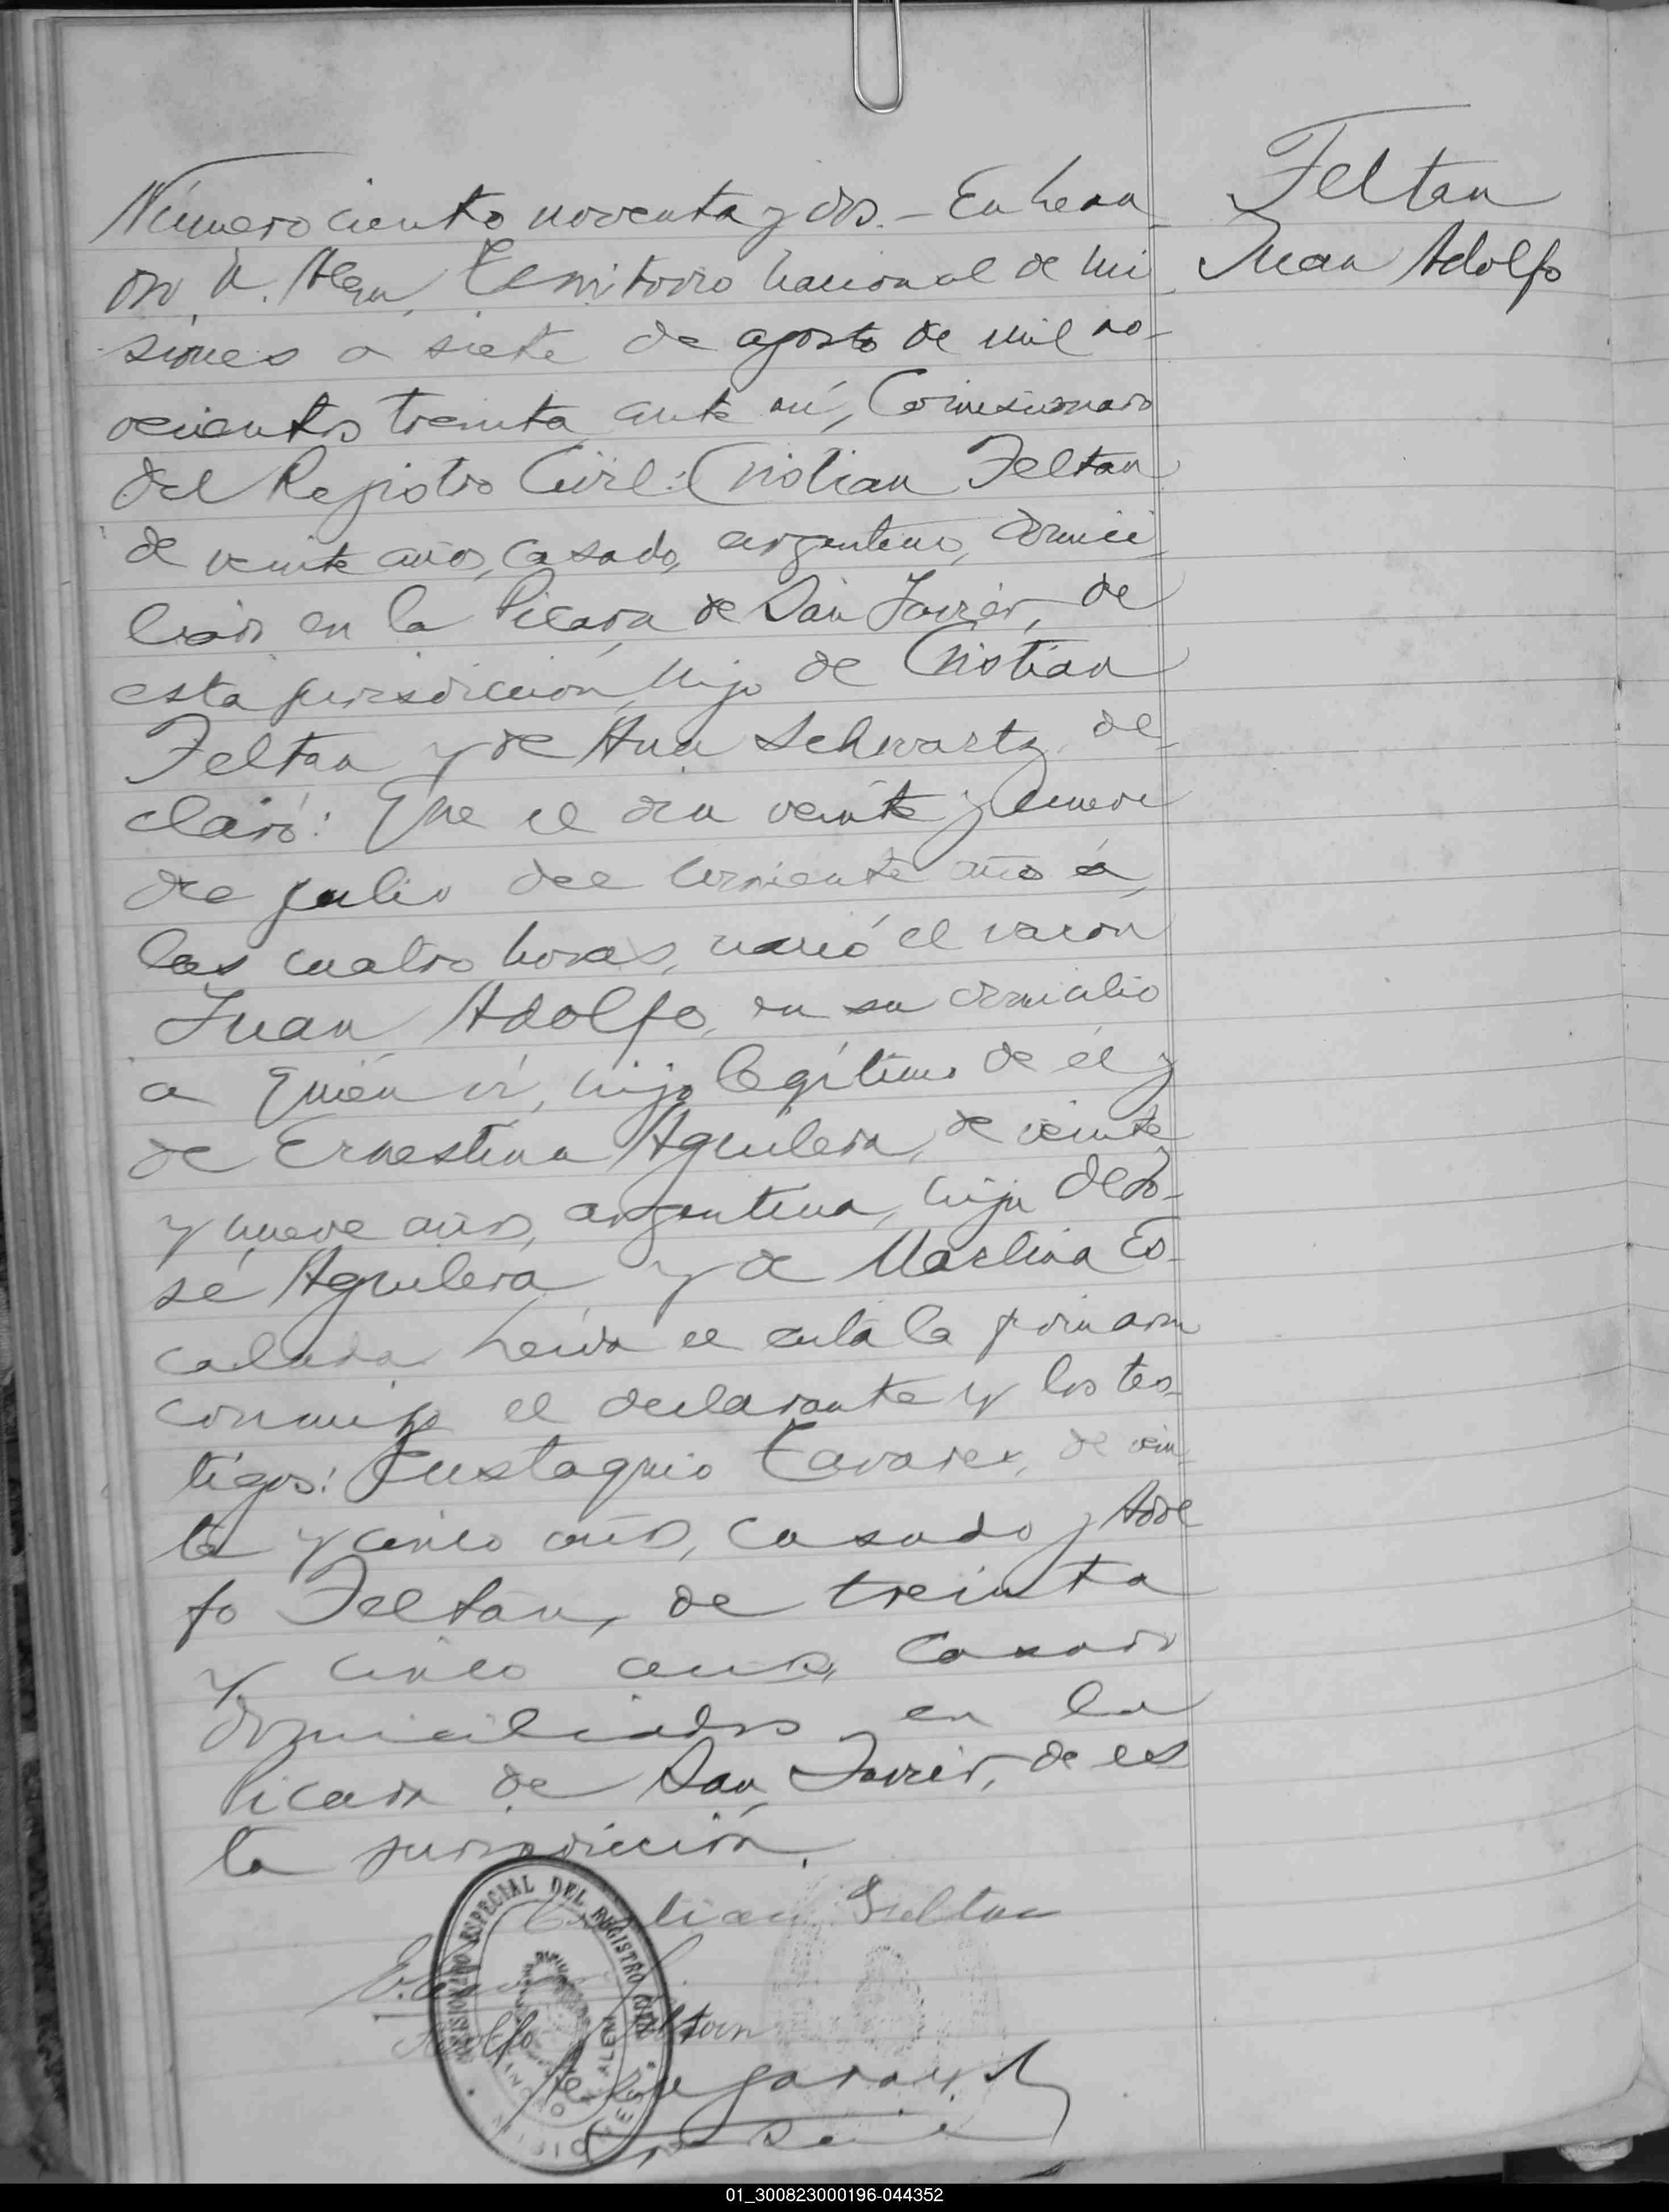 Feltan
Juan Adolfo
Número ciento noventa y dos. - En Lean
dro N. Alem, Territorio Nacional de Mi
siones a siete de agosto de mil no-
vecientos treinta, ante mí, Comisionado
del Registro Civil: Cristian Feltan
de veinte años, casado, argentino, domici
liado en la Picada de San Javier, de
esta jurisdicción, hijo de Cristian
Feltan y de Ana Schwartz, de
claró: Que el dia veinte y nueve
de julio del corriente año á
las cuatro horas, nació el varon
Juan Adolfo, en su domicilio
a quién ví, hijo legítimo de él y
de Ernestina Aguilera, de veinte
y nueve años, argentina, hija de Jo-
sé Aguilera y de Martina Es-
calada. Leída el acta la firmaron
conmigo el declarante y los tes-
tigos: Eustaquio Tavarez, de vein
te y cinco años, casado y Adol
fo Feltan, de treinta
y cinco años, casado
domiciliados en la
Picada de San Javier, de es
ta jurisdicción.
Cristian Feltan
Adolfo Feltan
COMISIONADO ESPECIAL DEL REGISTRO CIVIL
MISIONES
01_300823000196-044352